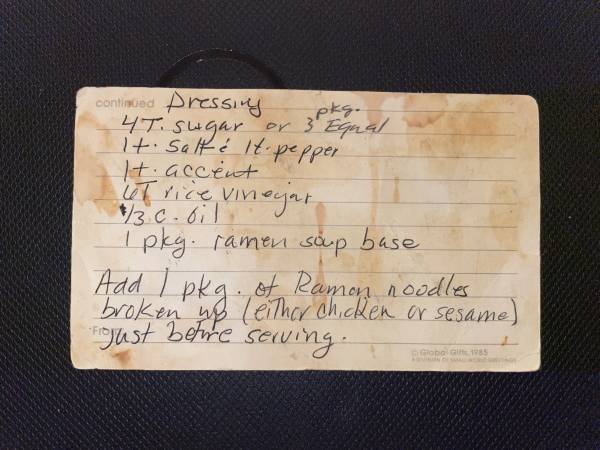 continued Dressing
4T. sugar or 3 pkg. Equal
1t. salt & 1t. pepper
1t. accent
6T rice vinegar
1/3 c. oil
1 pkg. ramen soup base
Add 1 pkg. of Ramen noodles
broken up (either chicken or sesame)
From
just before serving.
© Global Gifts, 1985
A DIVISION OF SMALL WORLD GREETINGS